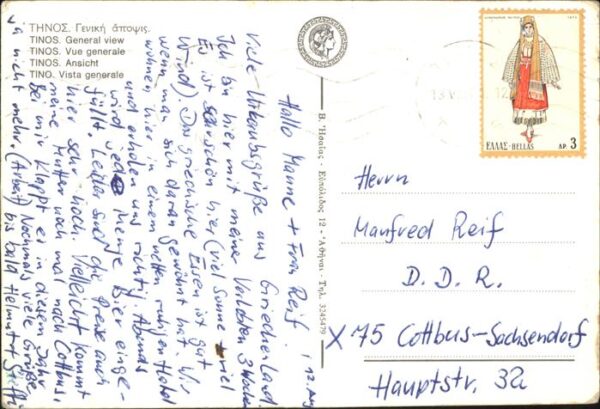 ΤΗΝΟΣ. Γενική ἄποψις.
TINOS. General view
TINOS. Vue generale
TINOS. Ansicht
TINO. Vista generale
Hallo Manne + Frau Reif.
Viele Urlaubsgrüße aus Griechenland.
Ich bin hier mit meine Verlobten 3 Wochen
Es ist schön hier (viel Sonne + viel
Wind). Das griechische Essen ist gut
wenn man sich daran gewöhnt hat. Wir
wohnen hier in einem netten ruhigen Hotel
und erholen uns richtig. Abends
wird jede Menge Bier einge-
füllt. Leider sind die Preise auch
hier sehr hoch. Vielleicht kommt
meine Mutter noch mal nach Cottbus,
bei mir klappt es in diesem Jahr
ja nicht mehr. (Arbeit) Nochmals viele Grüße
bis bald Helmut +
Β. Ἡσαΐας - Εὐπόλιδος 12 - Ἀθῆναι - Τηλ. 3246479
1973
ΕΛΛΑΣ-HELLAS ΔΡ. 3
Herrn
Manfred Reif
D. D. R.
X 75 Cottbus-Sachsendorf
Hauptstr. 32